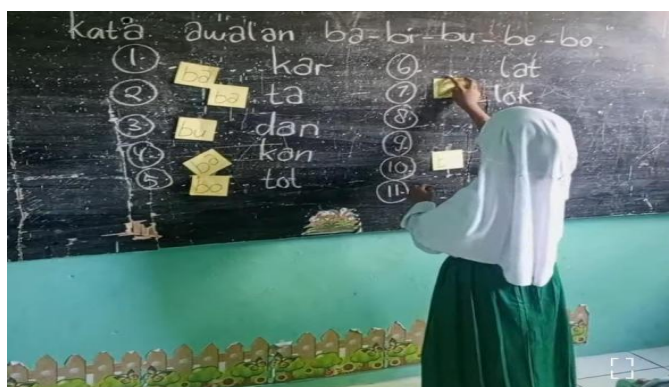 kata awalan ba-bi-bu-be-bo
1. ba kar
2. ba ta
3. bu dan
4. kan
5. bo tol
6. lat
7. lok
8.
9.
10.
11.